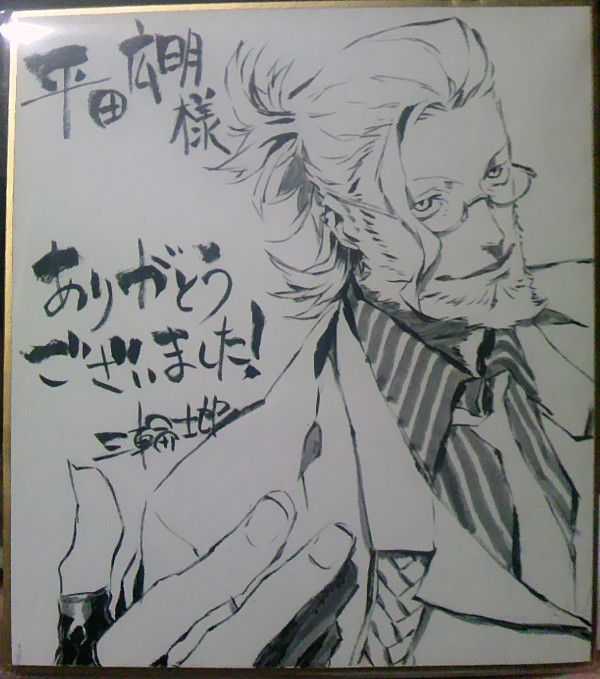 平田広明
様
ありがとう
ございました!
三輪士郎